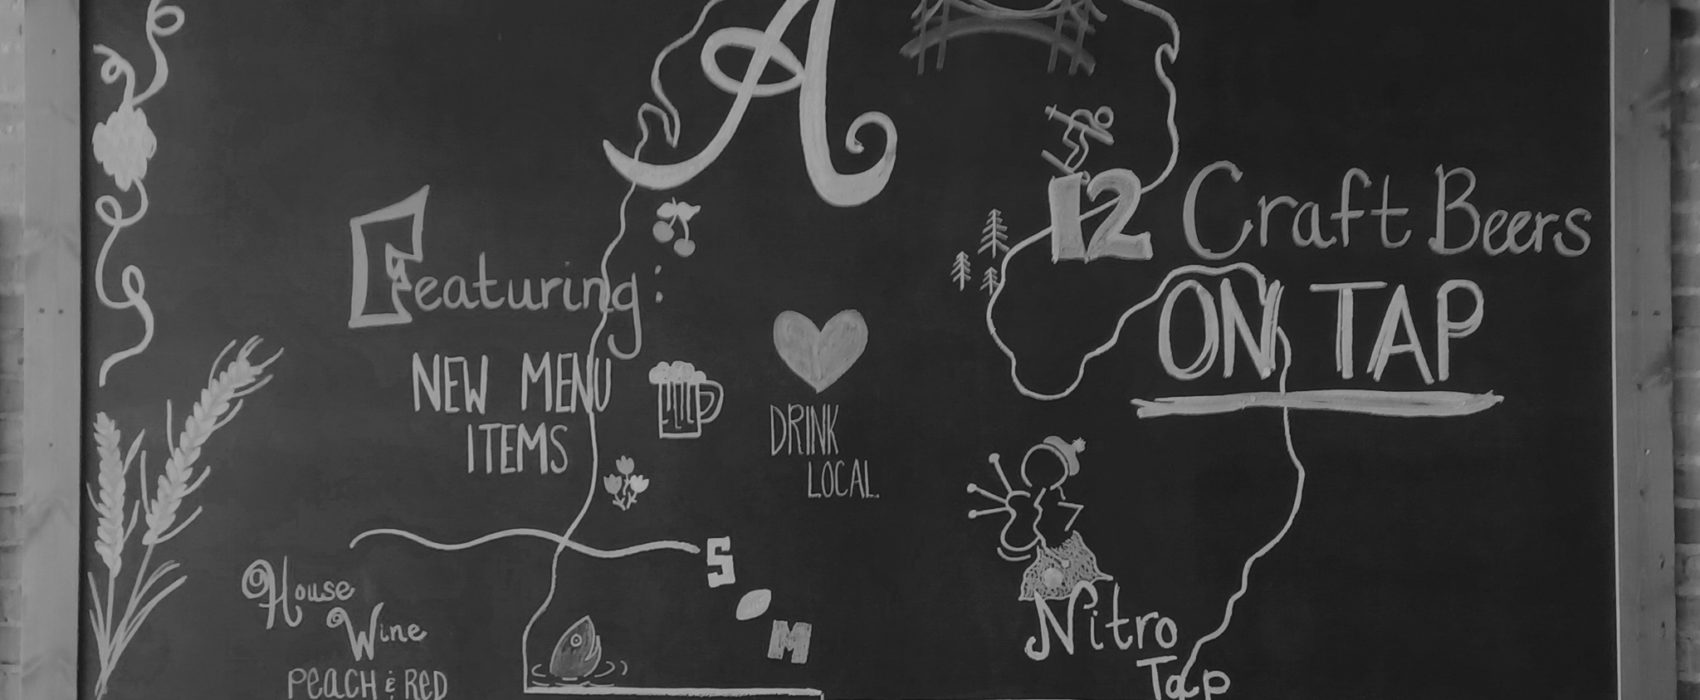 A
Featuring:
NEW MENU
ITEMS
12 Craft Beers
ON TAP
DRINK
LOCAL
S
M
House
Wine
PEACH & RED
Nitro
Tap